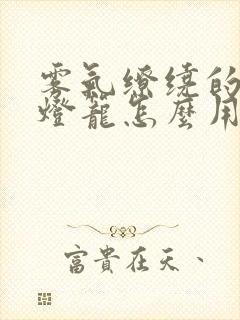 雾氣繚繞的
燈籠怎麼用
富貴在天、